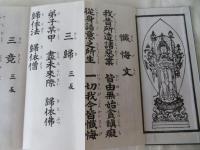 懺悔文
我昔所造諸惡業 皆由無始貪瞋痴
從身語意之所生 一切我今皆懺悔
三歸 三反
弟子某甲 盡未來際 歸依佛
歸依法 歸依僧
三竟 三反